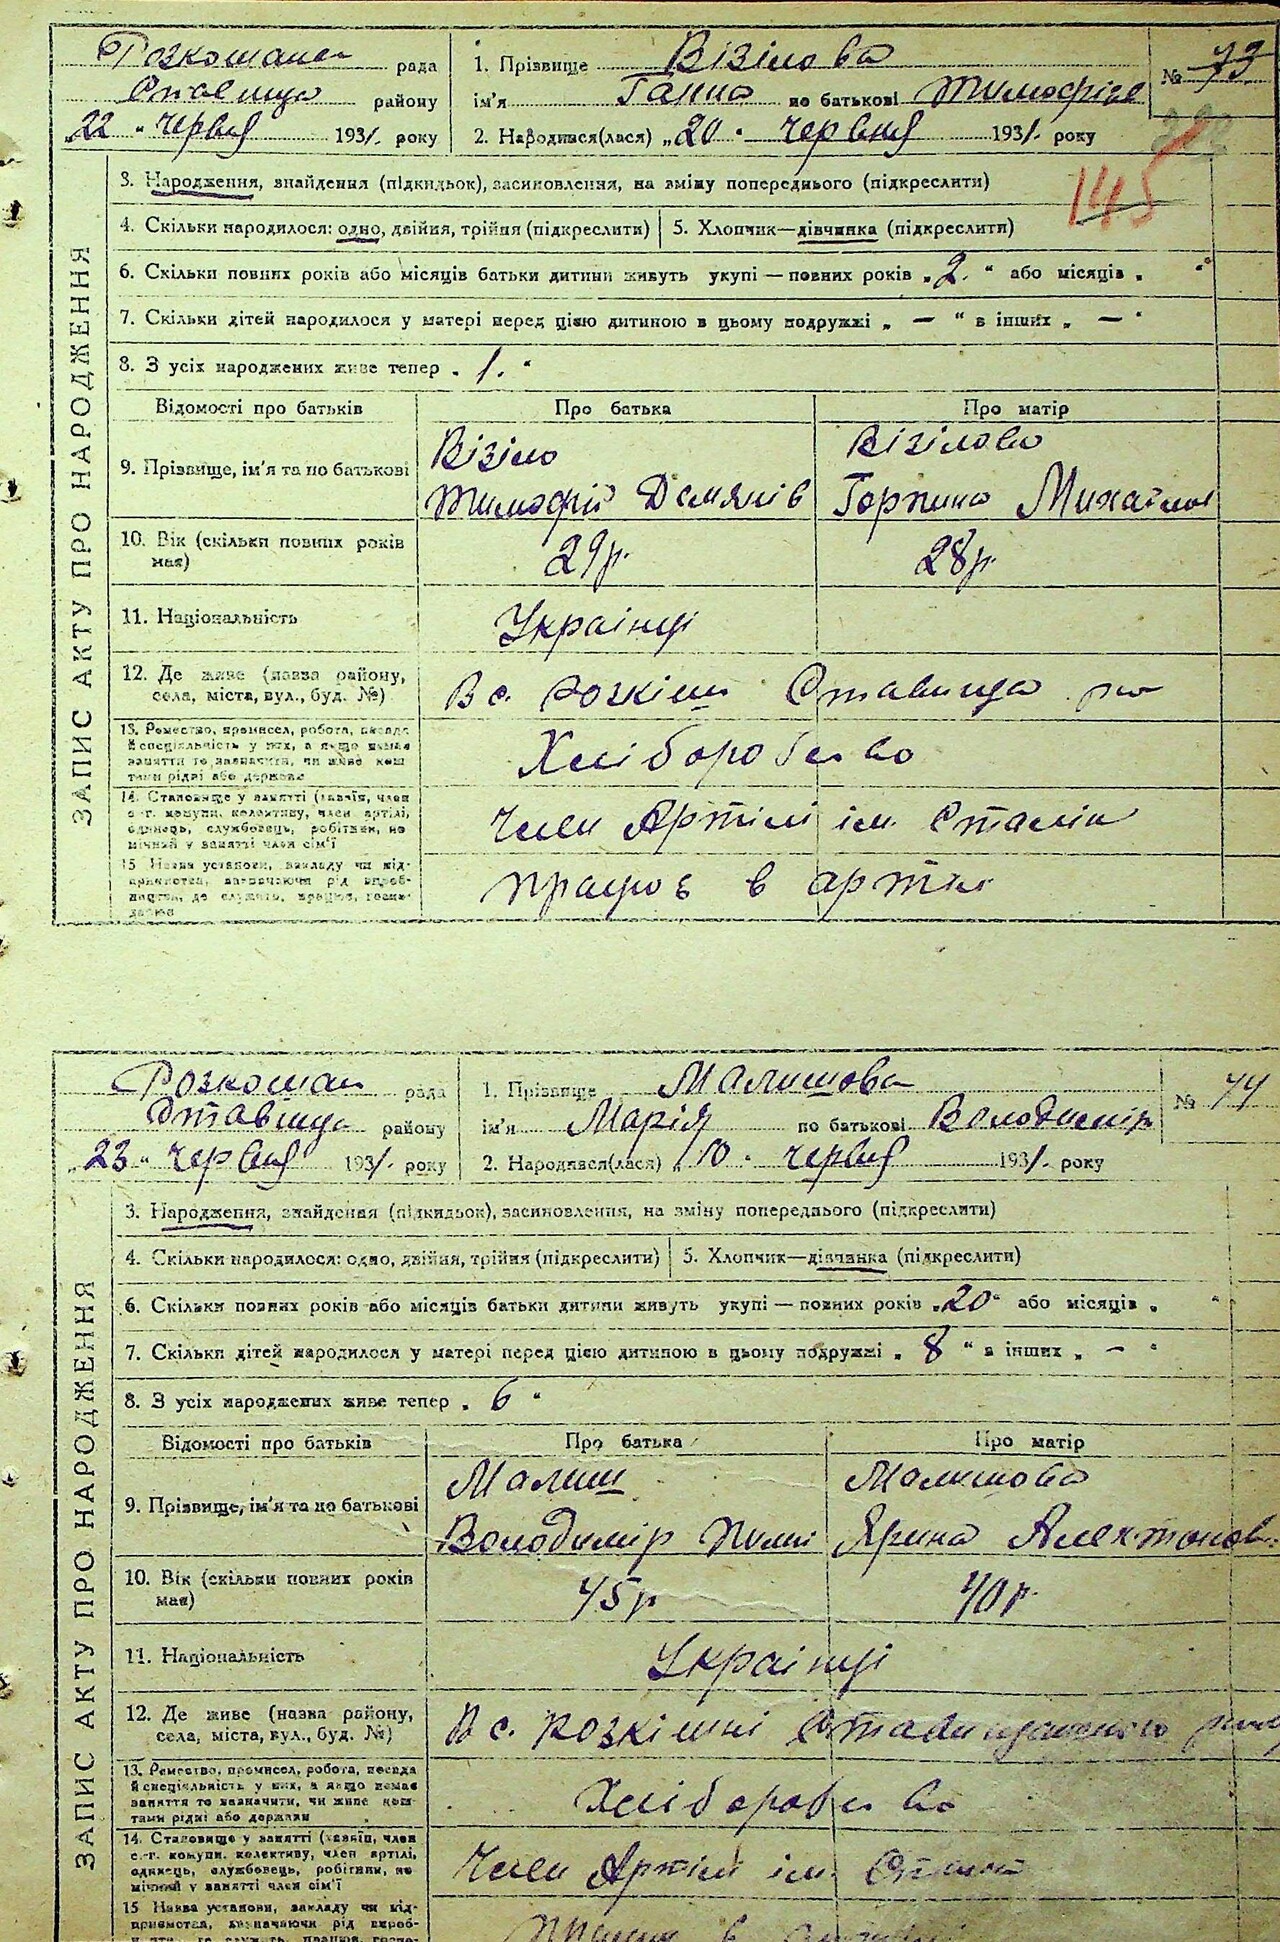 Розкошан рада
Ставища району
„22“ червня 1931. року
1. Прізвище Візілова
ім'я Ганна по батькові Тимофіїв
2. Народився(лася) „20“ червня 1931. року
№ 73
145
ЗАПИС АКТУ ПРО НАРОДЖЕННЯ
3. Народження, знайдення (підкидьок), засиновлення, на зміну попереднього (підкреслити)
4. Скільки народилося: одно, двійня, трійня (підкреслити) 5. Хлопчик—дівчинка (підкреслити)
6. Скільки повних років або місяців батьки дитини живуть укупі — повних років „2.“ або місяців „ “
7. Скільки дітей народилося у матері перед цією дитиною в цьому подружжі „ — “ в інших „ — “
8. З усіх народжених живе тепер „1.“
Відомості про батьків Про батька Про матір
9. Прізвище, ім'я та по батькові
Візіло Візілова
Тимофій Демянів Горпина Михайлов
10. Вік (скільки повних років має) 29р. 28р.
11. Національність Українці
12. Де живе (назва району, села, міста, вул., буд. №) В с. Розкіш Ставища р-н
13. Ремество, промисел, робота, посада й спеціяльність у них, а якщо немає заняття то зазначити, чи живе коштами рідні або держави Хліборобство
14. Становище у занятті (хазяїн, член с.-г. комуни, колективу, член артілі, одинець, службовець, робітник, помічний у занятті член сім'ї Член Артілі ім. Сталін
15 Назва установи, закладу чи підприємства, зазначаючи рід виробництва, де служить, працює, господарює працює в артілі
Розкошан рада
Ставища району
„23“ червня 1931. року
1. Прізвище Малишова
ім'я Марія по батькові Володимір
2. Народився(лася) „10“ червня 1931. року
№ 74
ЗАПИС АКТУ ПРО НАРОДЖЕННЯ
3. Народження, знайдення (підкидьок), засиновлення, на зміну попереднього (підкреслити)
4. Скільки народилося: одно, двійня, трійня (підкреслити) 5. Хлопчик—дівчинка (підкреслити)
6. Скільки повних років або місяців батьки дитини живуть укупі — повних років „20“ або місяців „ “
7. Скільки дітей народилося у матері перед цією дитиною в цьому подружжі „8“ в інших „ — “
8. З усіх народжених живе тепер „6“
Відомості про батьків Про батька Про матір
9. Прізвище, ім'я та по батькові
Малиш Малишова
Володимір Ярина
10. Вік (скільки повних років має) 45р 40р.
11. Національність Українці
12. Де живе (назва району, села, міста, вул., буд. №) В с. Розкішні Ставищанського
13. Ремество, промисел, робота, посада й спеціяльність у них, а якщо немає заняття то зазначити, чи живе коштами рідні або держави Хліборобство
14. Становище у занятті (хазяїн, член с.-г. комуни, колективу, член артілі, одинець, службовець, робітник, помічний у занятті член сім'ї Член Артілі ім. Сталін
15 Назва установи, закладу чи підприємства, зазначаючи рід вироб-